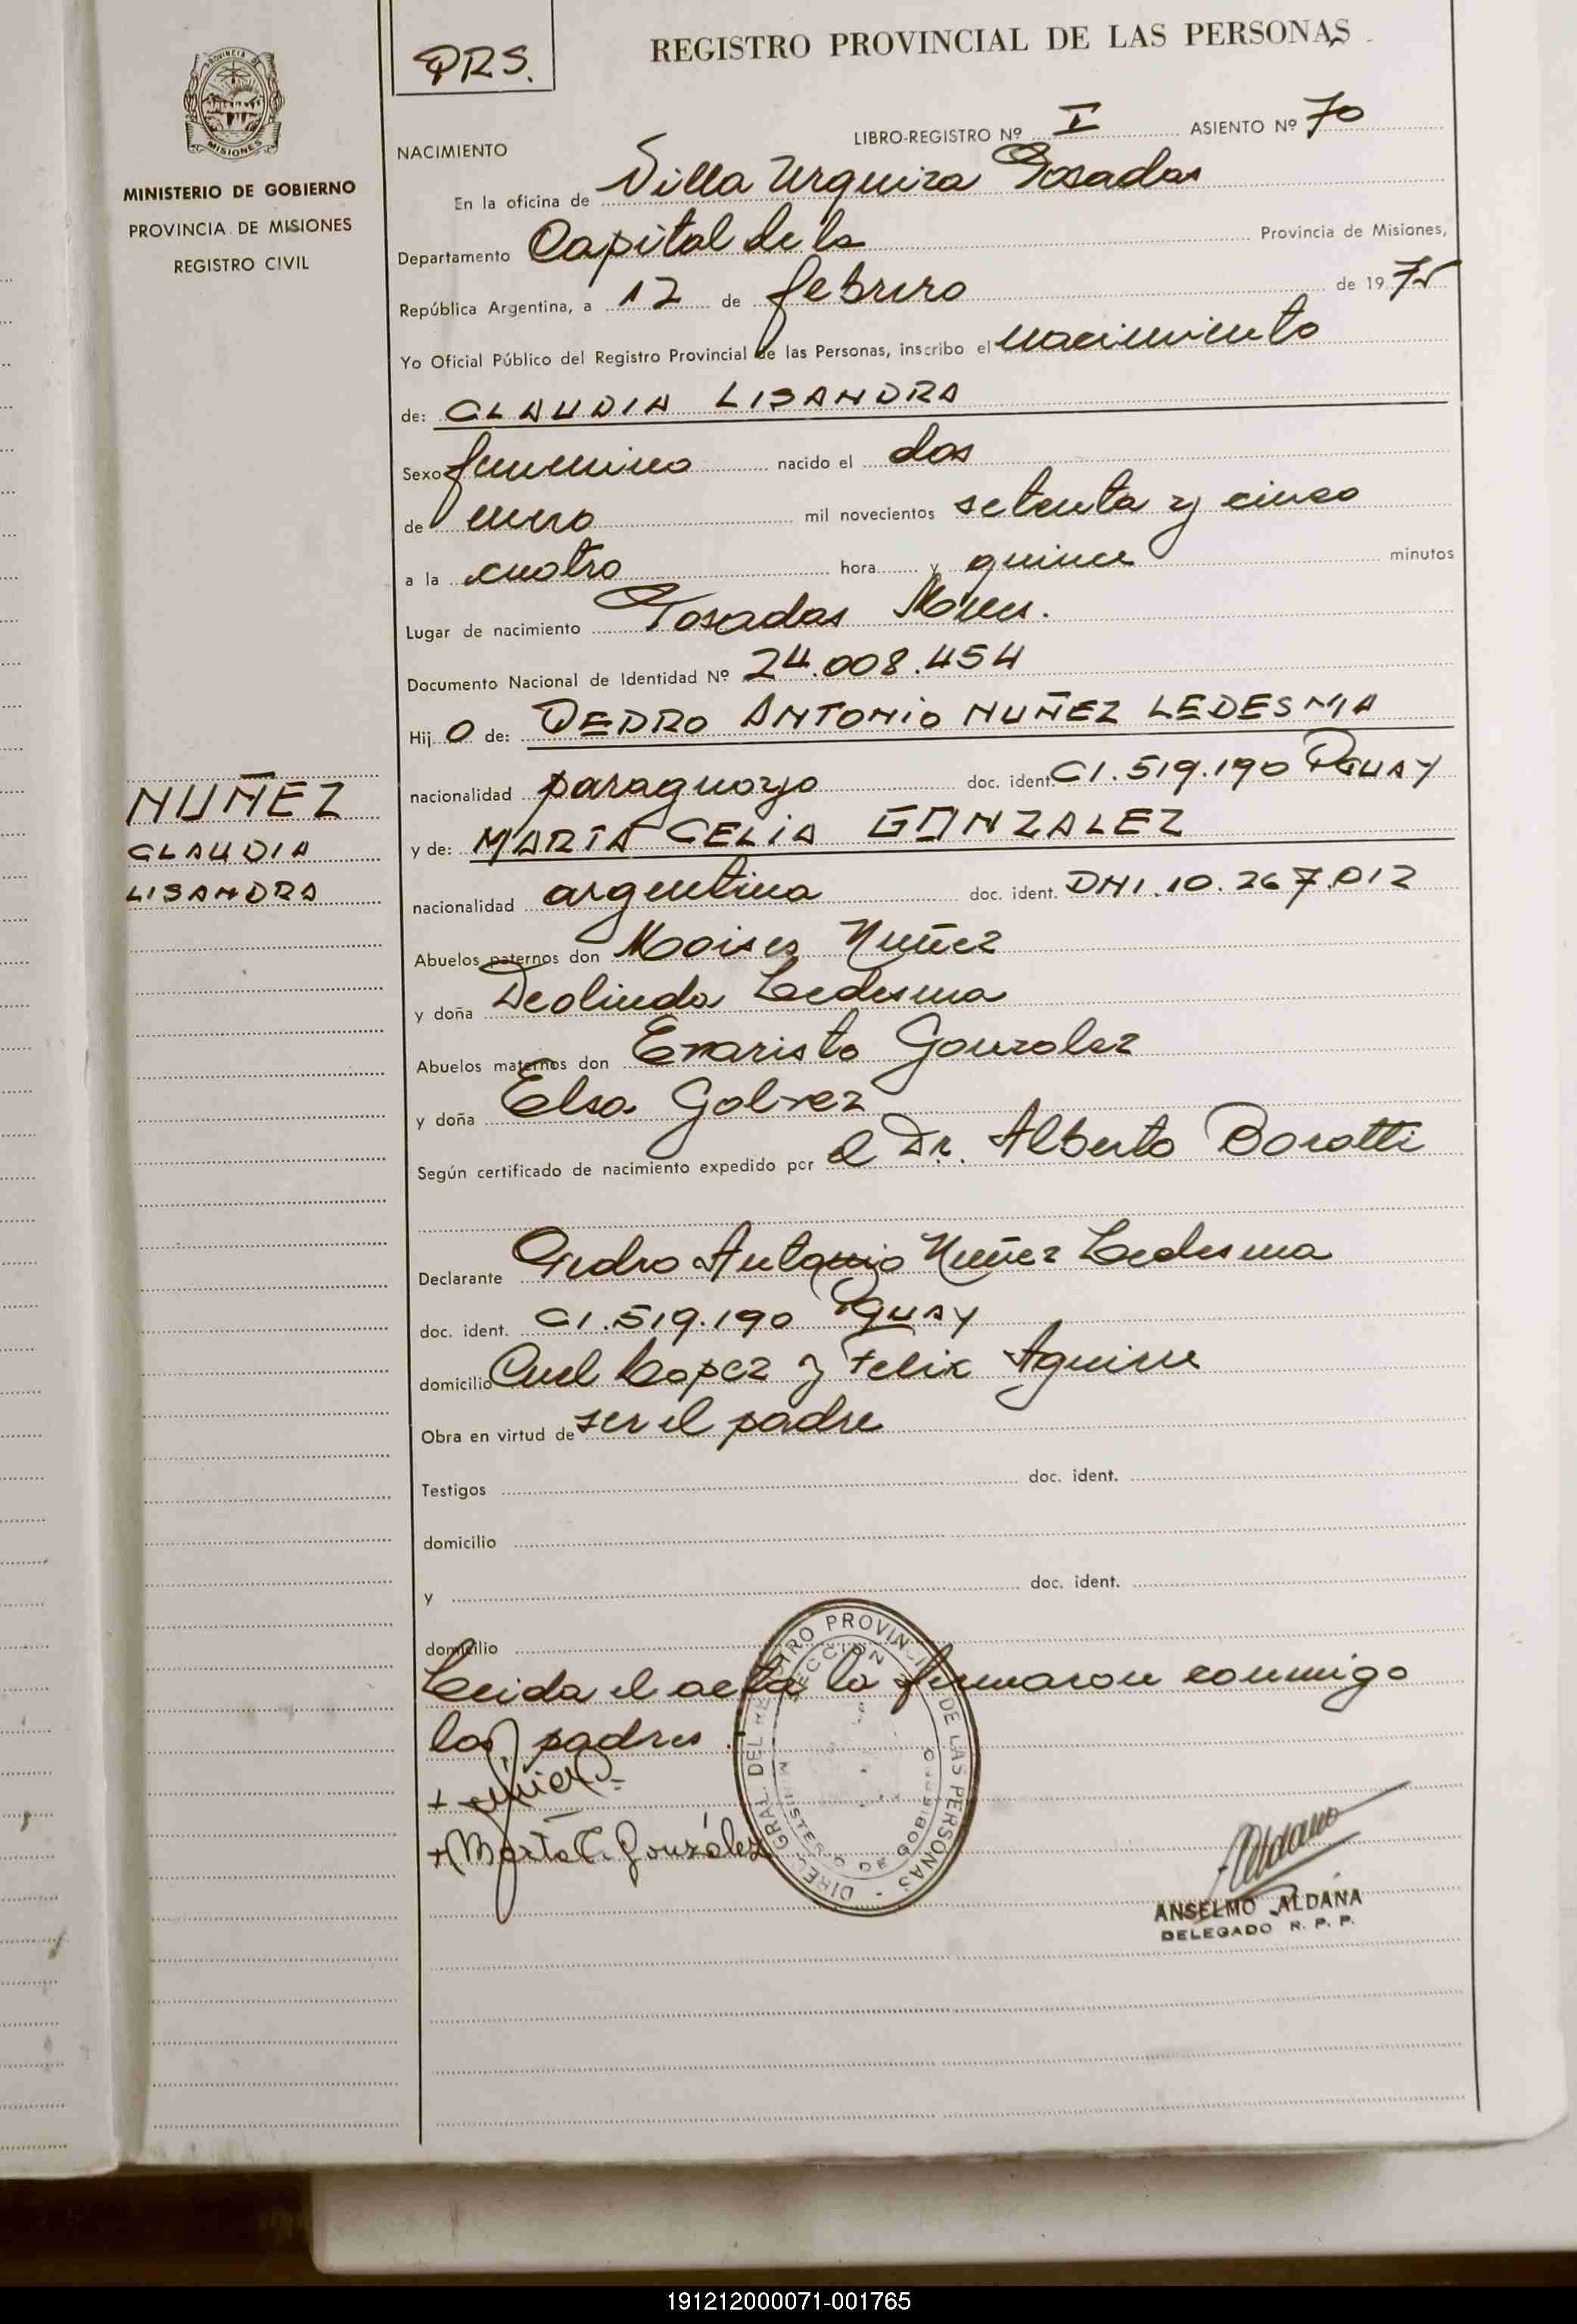 PROVINCIA DE
MISIONES
MINISTERIO DE GOBIERNO
PROVINCIA DE MISIONES
REGISTRO CIVIL
NUÑEZ
CLAUDIA
LISANDRA
PRS.
REGISTRO PROVINCIAL DE LAS PERSONAS
LIBRO-REGISTRO Nº I ASIENTO Nº 70
NACIMIENTO
En la oficina de Villa Urquiza Posadas
Departamento Capital de la Provincia de Misiones,
República Argentina, a 12 de febrero de 1975
Yo Oficial Público del Registro Provincial de las Personas, inscribo el nacimiento
de: CLAUDIA LISANDRA
Sexo femenino nacido el dos
de enero mil novecientos setenta y cinco
a la cuatro hora y quince minutos
Lugar de nacimiento Posadas Mnes.
Documento Nacional de Identidad Nº 24.008.454
Hij O de: PEDRO ANTONIO NUÑEZ LEDESMA
nacionalidad paraguayo doc. ident. CI.519.190 PGUAY
y de: MARTA CELIA GONZALEZ
nacionalidad argentina doc. ident. DNI.10.267.012
Abuelos paternos don Moises Nuñez
y doña Deolinda Ledesma
Abuelos maternos don Evaristo Gonzalez
y doña Elsa Galvez
Según certificado de nacimiento expedido por el Dr. Alberto Boratti
Declarante Pedro Antonio Nuñez Ledesma
doc. ident. CI.519.190 PGUAY
domicilio Cnel Lopez y Felix Aguirre
Obra en virtud de ser el padre
Testigos doc. ident.
domicilio
y doc. ident.
domicilio
Leida el acta la firmaron conmigo
los padres.-
+ Marta C. González
DIREC. GRAL. DEL REGISTRO PROVINCIAL DE LAS PERSONAS
SECCION
MINISTERIO DE GOBIERNO
Aldana
ANSELMO ALDANA
DELEGADO R. P. P.
191212000071-001765